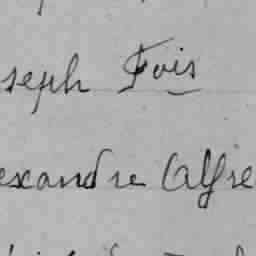 seph Fois
exandre Alfre